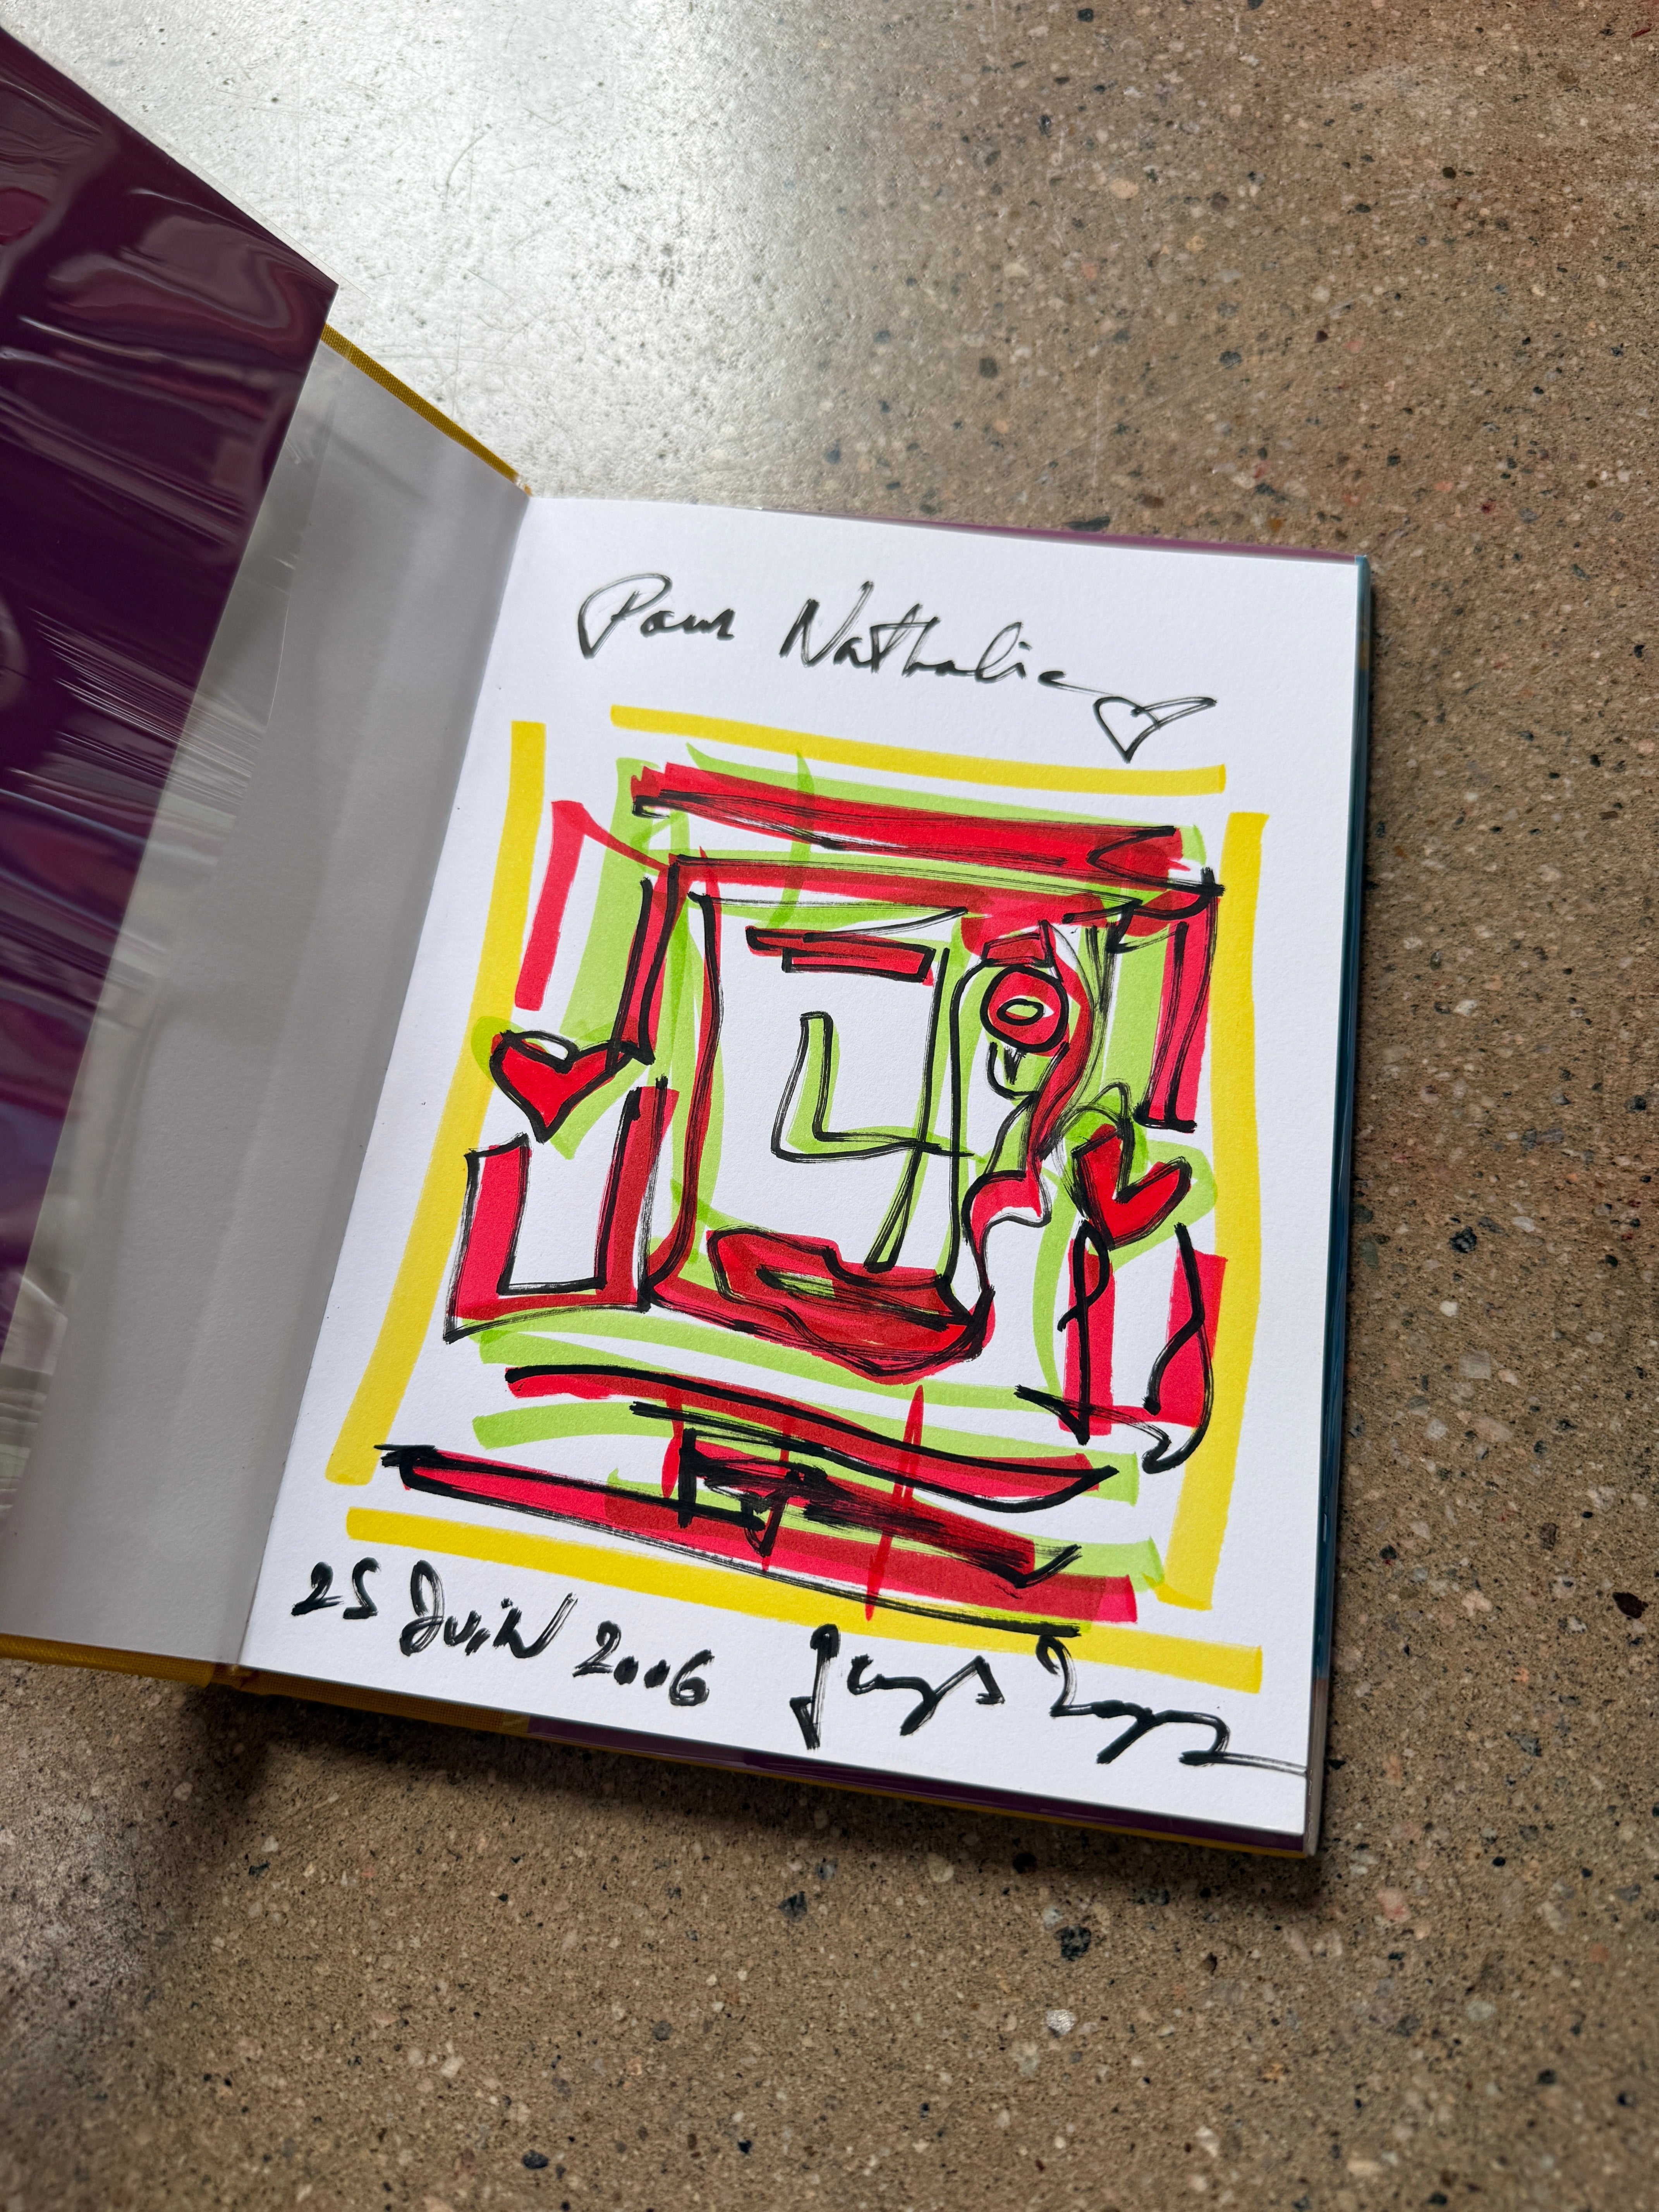 Pour Nathalie
25 Juin 2006